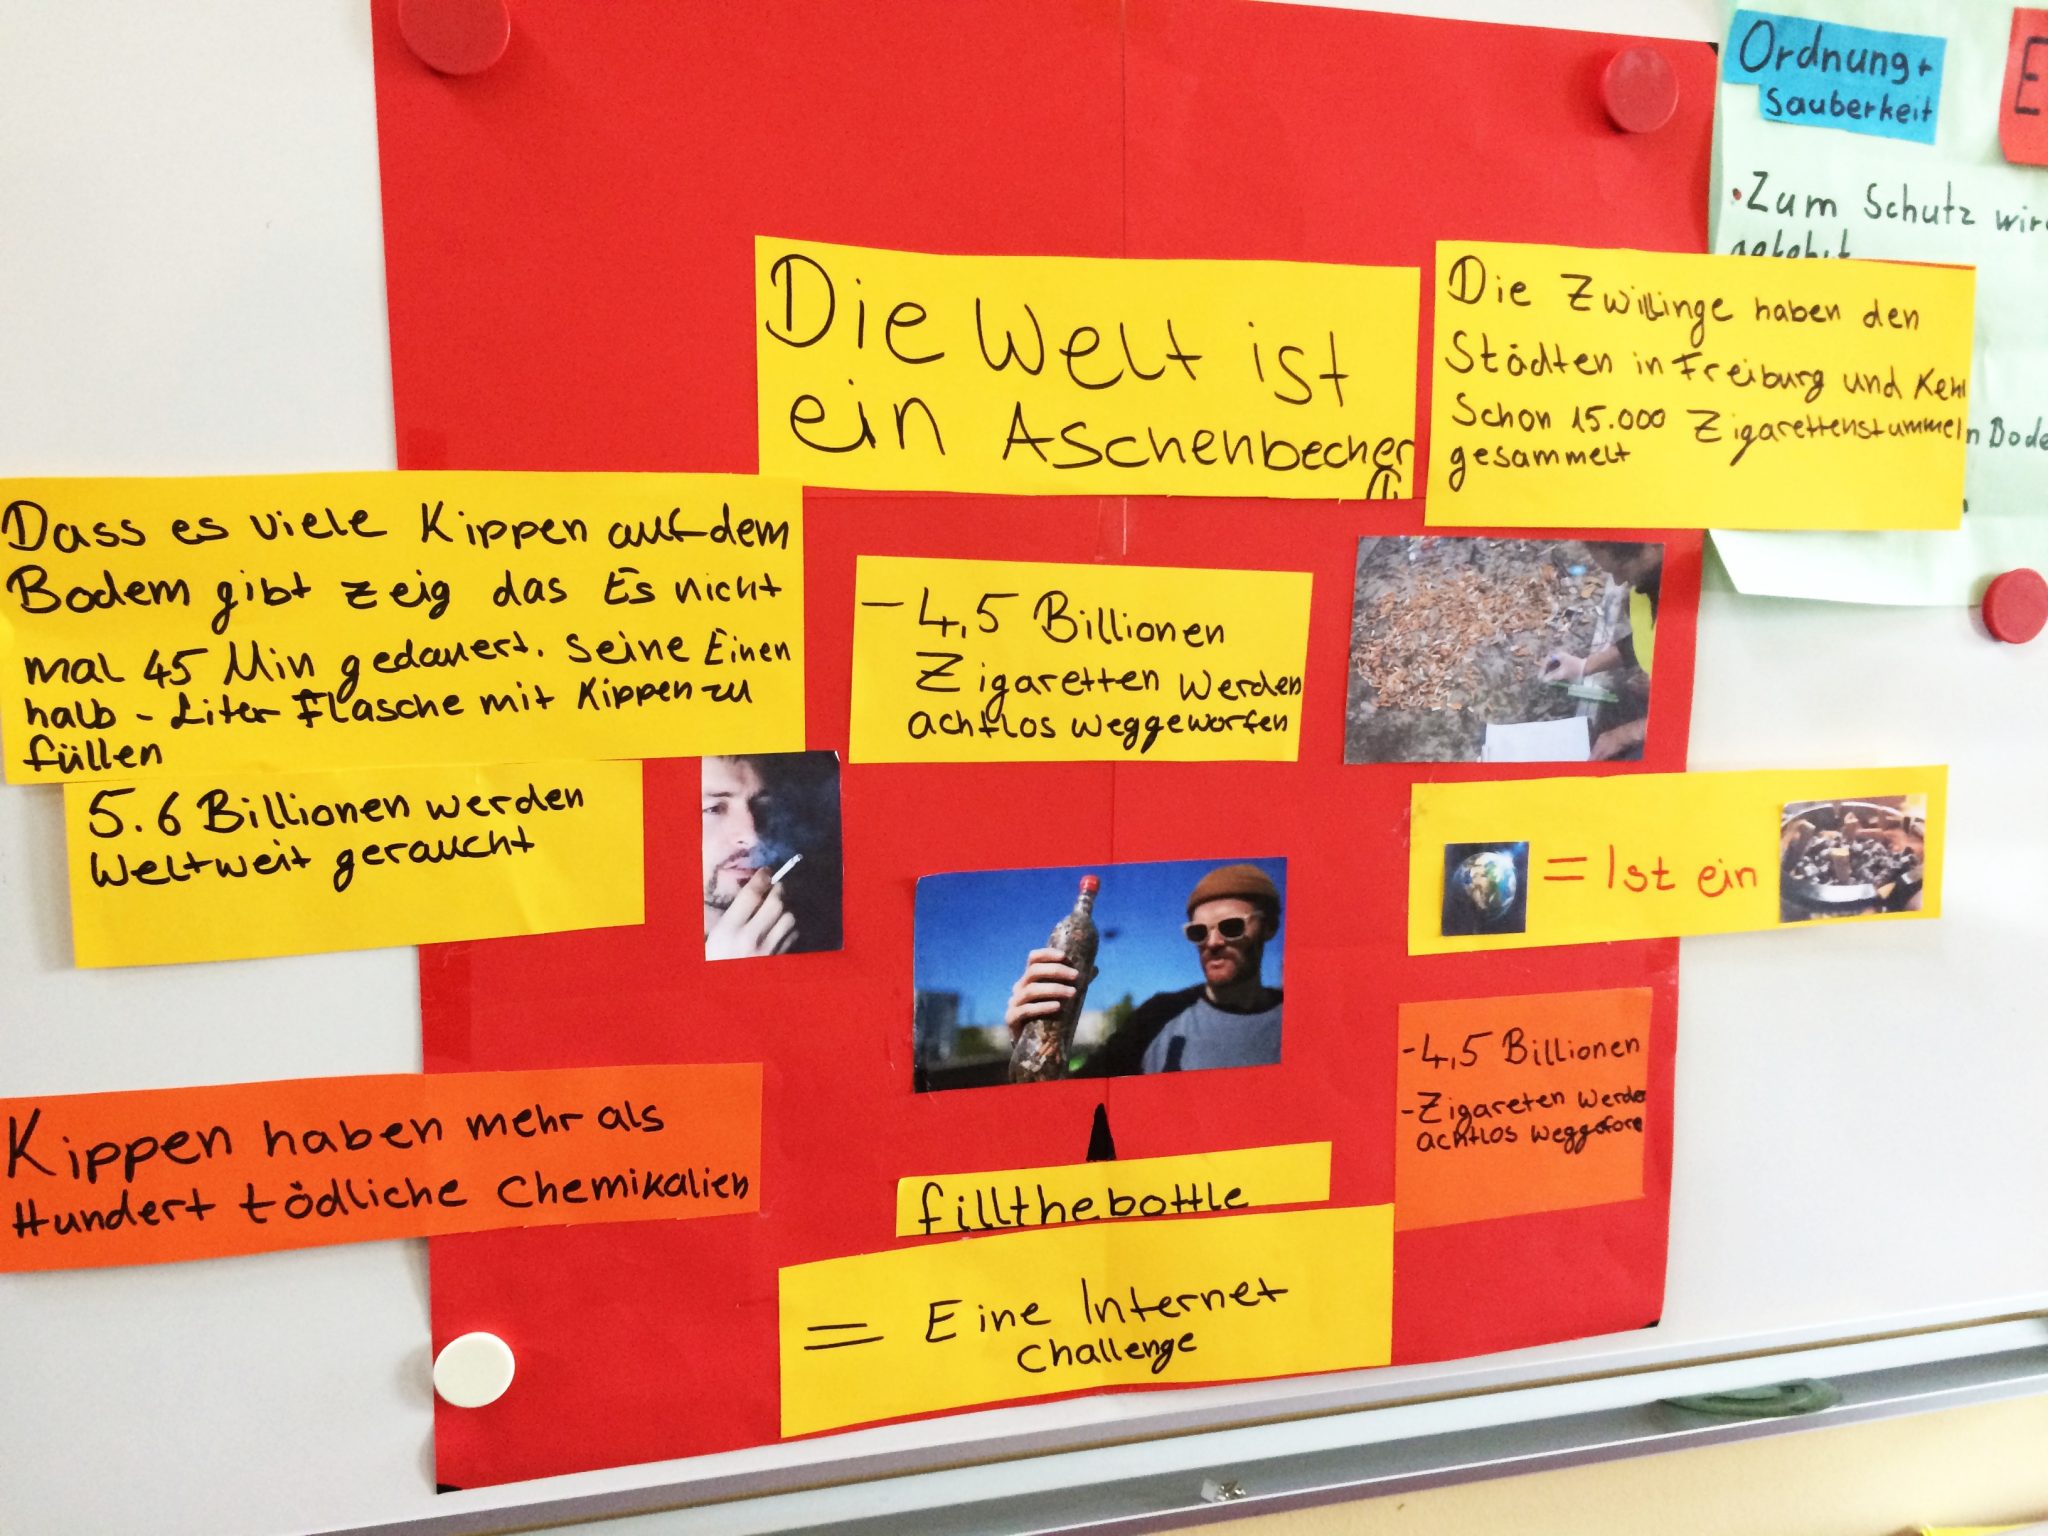 Ordnung +
Sauberkeit
E
• Zum Schutz wir
n Bode
Die Welt ist
ein Aschenbecher
Die Zwillinge haben den
Städten in Freiburg und Kehl
Schon 15.000 Zigarettenstummel
gesammelt
Dass es viele Kippen auf dem
Bodem gibt zeig das Es nicht
mal 45 Min gedauert. seine Einen
halb - Liter Flasche mit Kippen zu
füllen
- 4,5 Billionen
Zigaretten werden
achtlos weggeworfen
5.6 Billionen werden
Weltweit geraucht
= Ist ein
- 4,5 Billionen
- Zigareten werden
achtlos
Kippen haben mehr als
Hundert tödliche Chemikalien
fillthebottle
= Eine Internet
Challenge